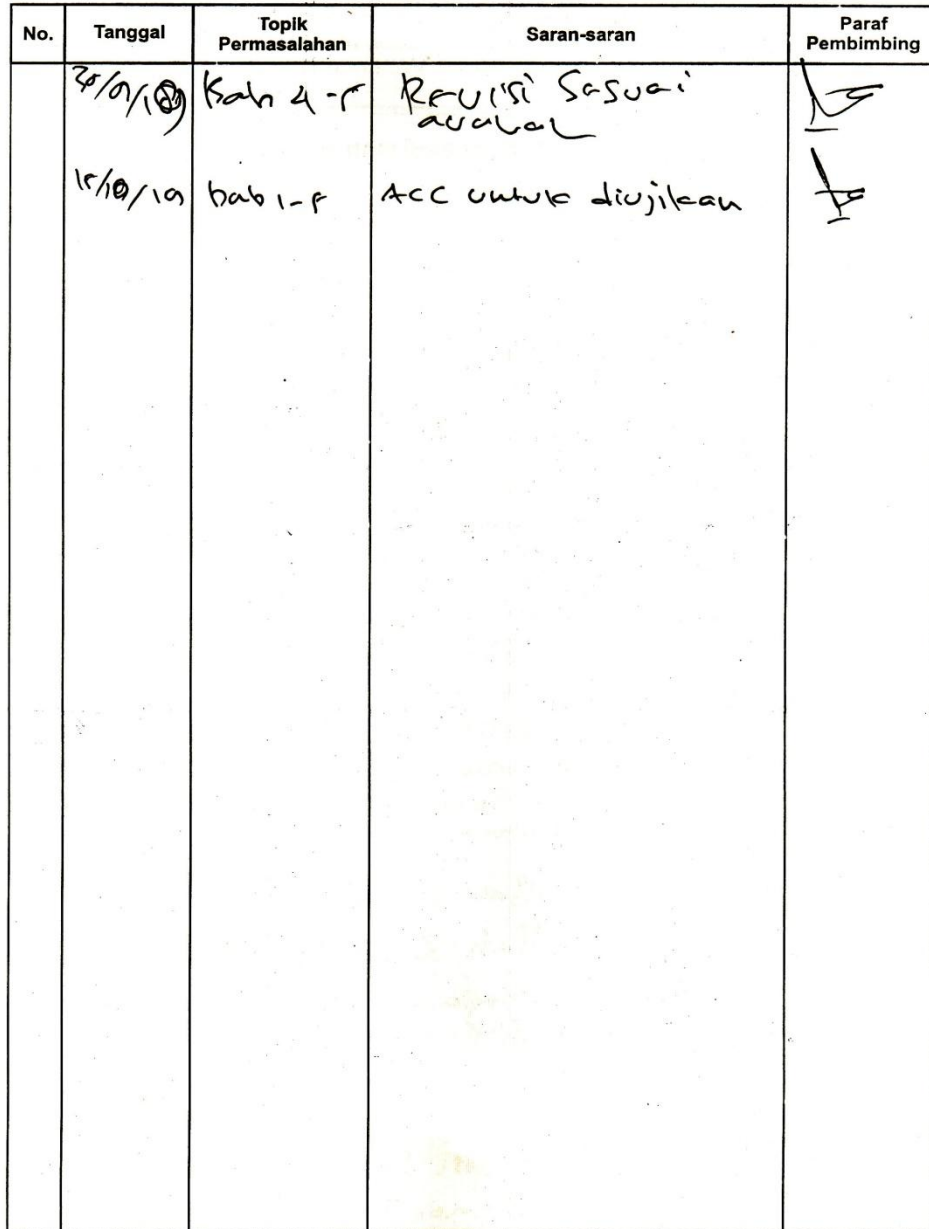 No. Tanggal Topik Permasalahan Saran-saran Paraf Pembimbing
Bab 4-5 Revisi Sesuai
arahan
15/10/19 bab 1-5 ACC untuk diujikan